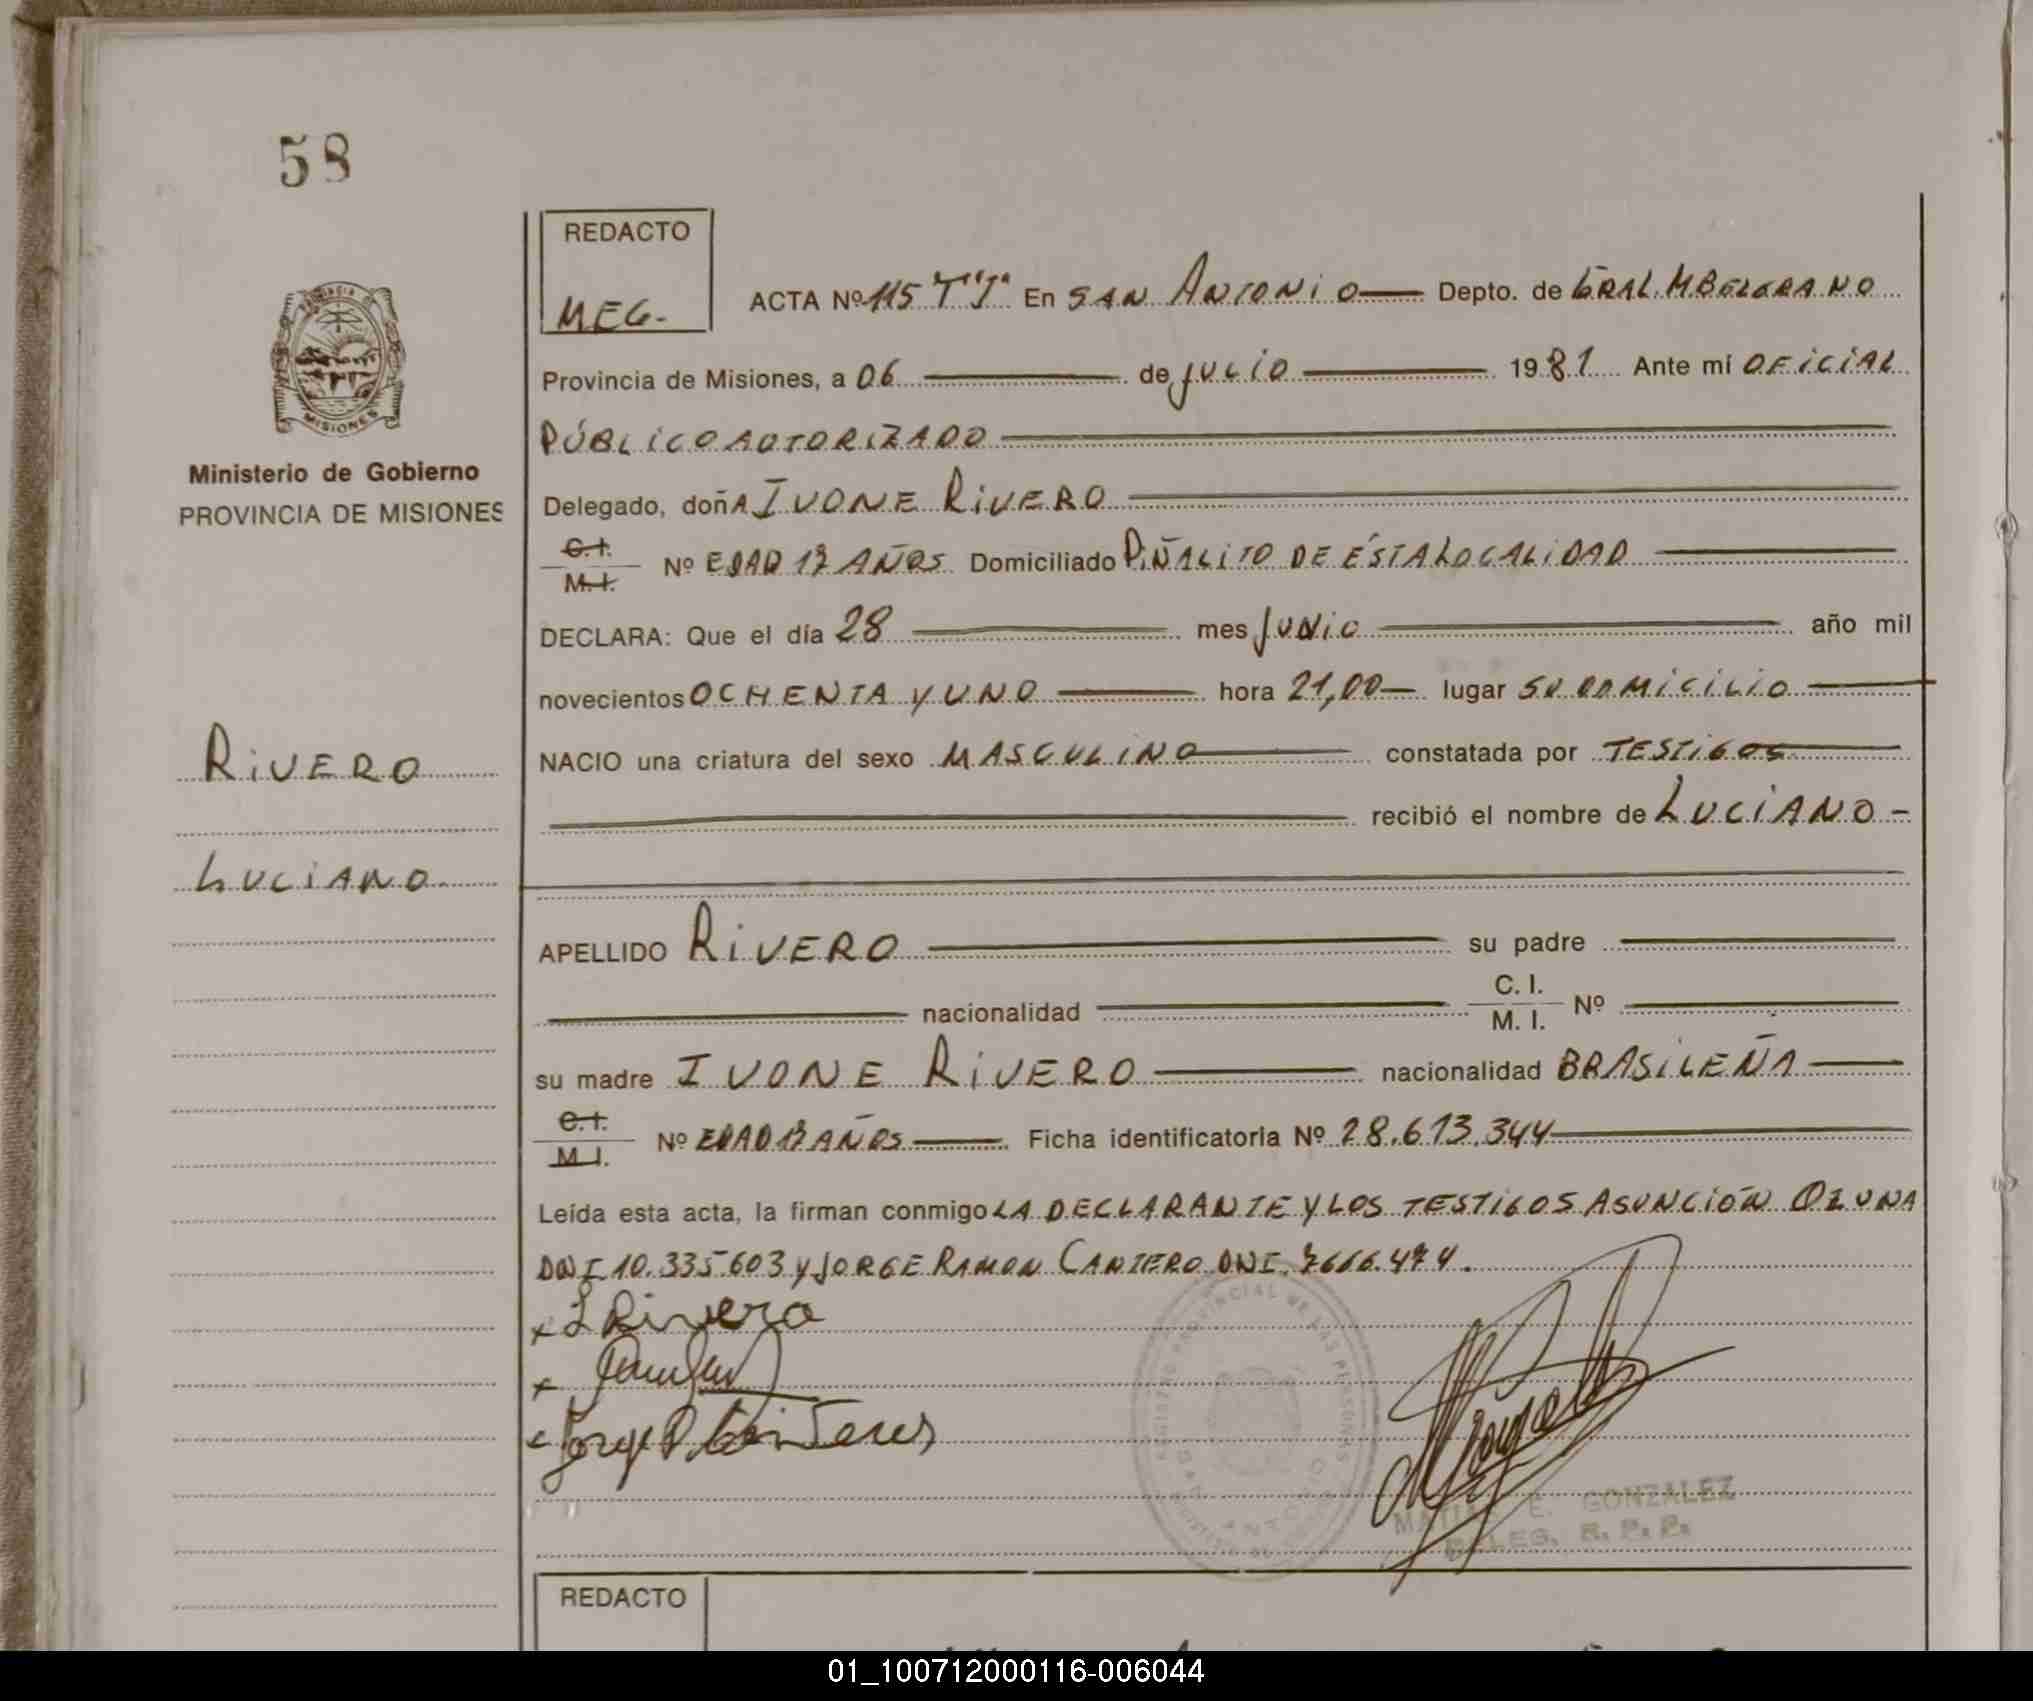 58
REDACTO
MEG.
ACTA Nº 115 T"I" En SAN ANTONIO Depto. de GRAL. M BELGRANO
Provincia de Misiones, a 06 de JULIO 1981 Ante mí OFICIAL
PÚBLICO AUTORIZADO
Ministerio de Gobierno
PROVINCIA DE MISIONES
Delegado, doñA IVONE RIVERO
C.I.
M.I.
Nº EDAD 17 AÑOS Domiciliado PIÑALITO DE ÉSTA LOCALIDAD
DECLARA: Que el día 28 mes JUNIO año mil
novecientos OCHENTA Y UNO hora 21,00 lugar SU DOMICILIO
RIVERO
NACIO una criatura del sexo MASCULINO constatada por TESTIGOS
recibió el nombre de LUCIANO -
LUCIANO
APELLIDO RIVERO su padre
nacionalidad C. I. M. I. Nº
su madre IVONE RIVERO nacionalidad BRASILEÑA
C.I.
M.I.
Nº EDAD 17 AÑOS Ficha identificatoria Nº 28.613.344
Leída esta acta, la firman conmigo LA DECLARANTE Y LOS TESTIGOS ASUNCIÓN OZUNA
DNI 10.335.603 Y JORGE RAMON CANTERO DNI. 7666.474.
x I Rivero
x
x Jorge R
MISIONES
GONZALEZ
DELEG. R. P. P.
REDACTO
01_100712000116-006044